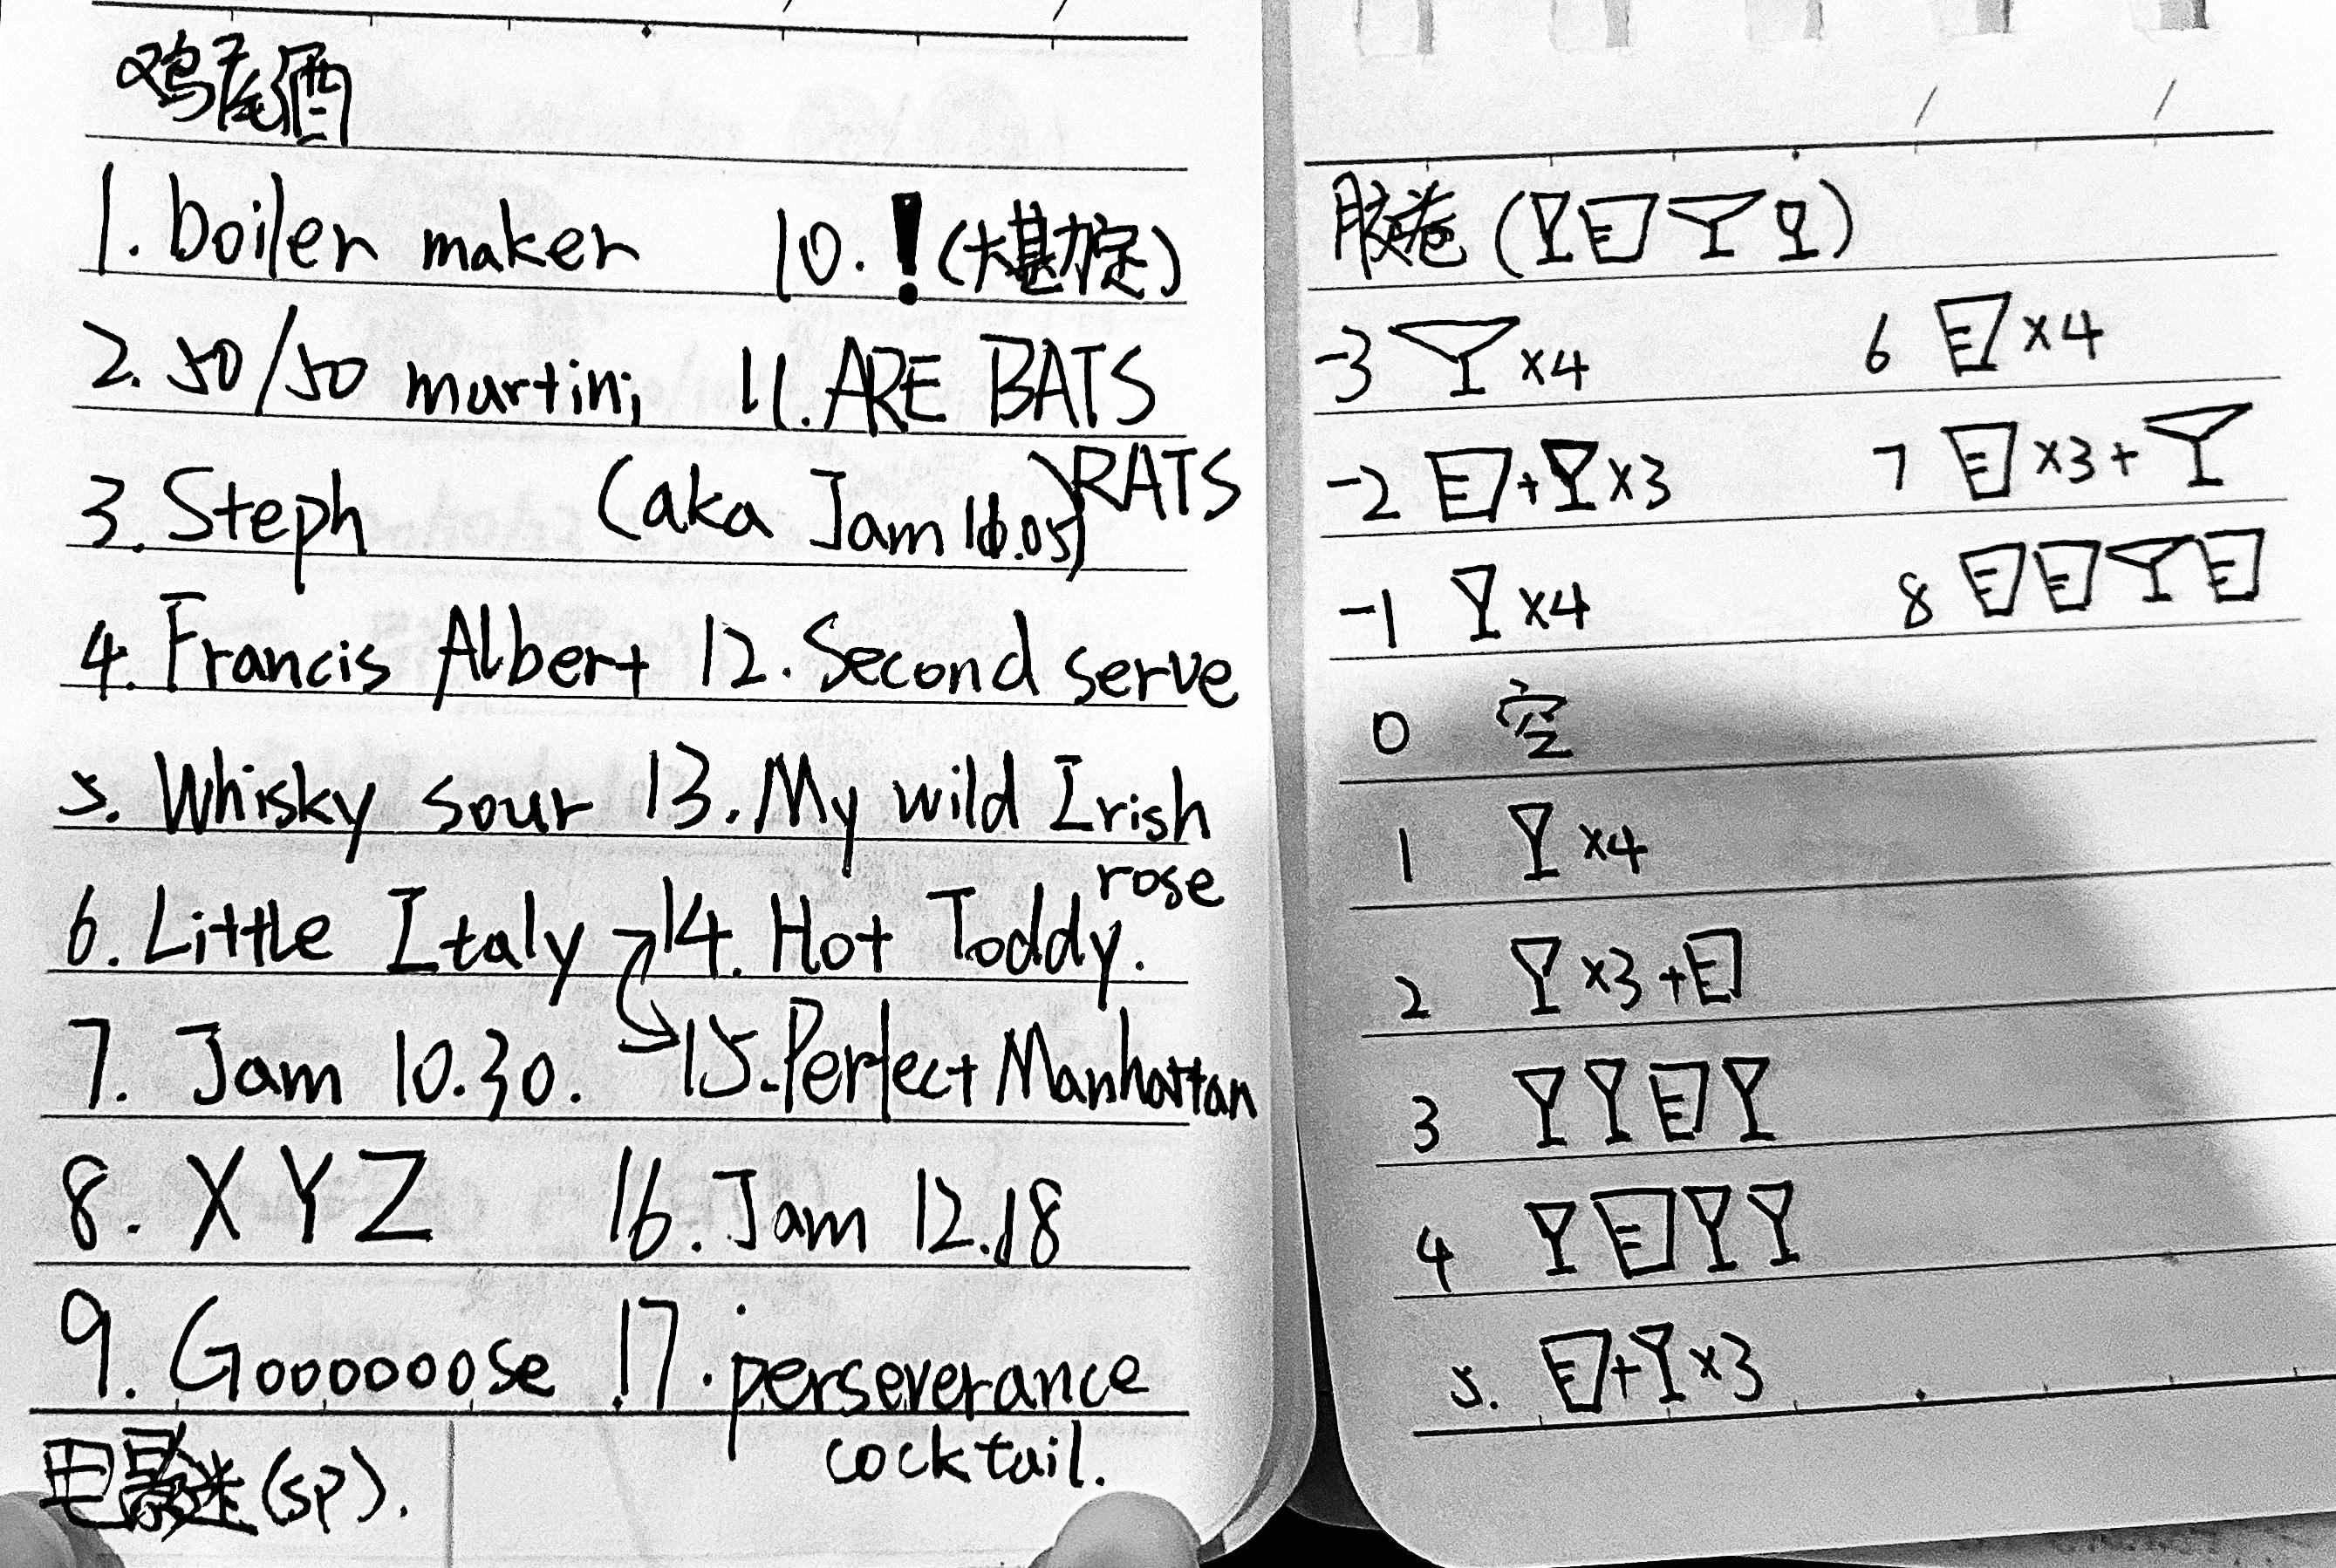 鸡尾酒
1. boiler maker
2. 50/50 martini
3. Steph
4. Francis Albert
5. Whisky sour
6. Little Italy
7. Jam 10.30.
8. XYZ
9. Gooooooose
10. ! (大勘定)
11. ARE BATS
RATS
(aka Jam 10.05)
12. Second serve
13. My wild Irish
rose
14. Hot Toddy.
15. Perfect Manhattan
16. Jam 12.18
17. perseverance
cocktail.
电影迷 (sp).
胶卷 ( )
-3 ×4
-2 + ×3
-1 ×4
0 空
1 ×4
2 ×3 +
3
4
5. + ×3
6 ×4
7 ×3 +
8